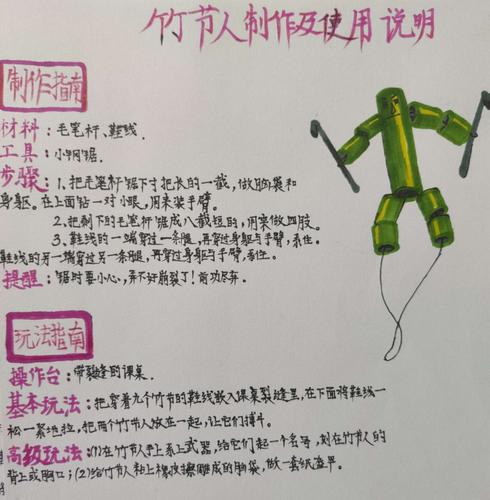 竹节人制作及使用说明
制作指南
材料：毛笔杆、鞋线.
工具：小钢锯.
步骤：1.把毛笔杆锯下寸把长的一截，做脑袋和
身躯。在上面钻一对小眼，用来装手臂。
2.把剩下的毛笔杆锯成八截短的，用来做四肢。
3.鞋线的一端穿过一条腿，再穿过身躯与手臂，系住。
鞋线的另一端穿过另一条腿，再穿过身躯与手臂，系住。
提醒：锯时要小心，弄不好崩裂了！前功尽弃。
玩法指南
操作台：带裂缝的课桌.
基本玩法：把穿着九个竹节的鞋线嵌入课桌裂缝里，在下面将鞋线一
松一紧地拉，把两个竹节人放在一起，让它们搏斗。
高级玩法：(1)在竹节人手上系上武器，给它们起一个名号，刻在竹节人的
背上或胸口；(2)给竹节人粘上橡皮擦雕成的脑袋，做一套纸盔甲。